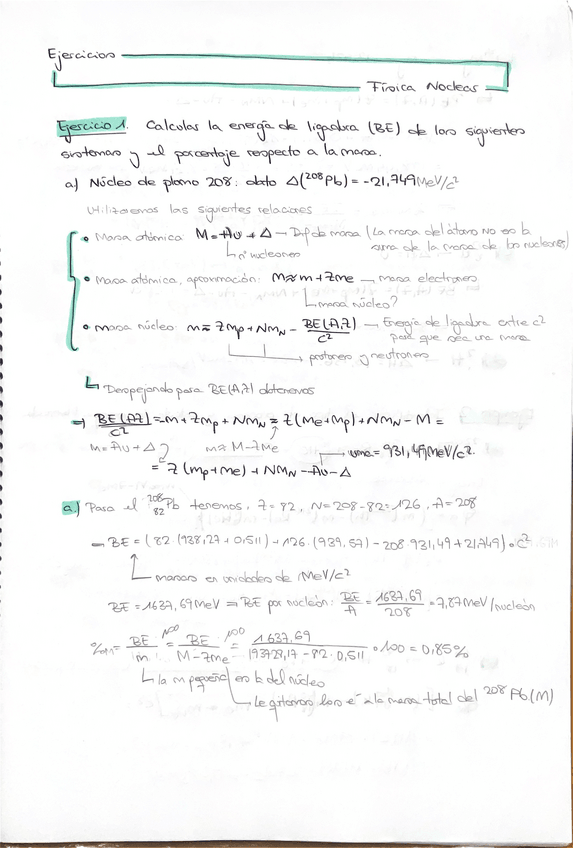 Ejercicios
Física Nuclear
Ejercicio 1. Calcular la energía de ligadura (BE) de los siguientes
sistemas y el porcentaje respecto a la masa.
a) Núcleo de plomo 208: dato Δ(²⁰⁸Pb) = -21,749 MeV/c²
Utilizaremos las siguientes relaciones
• Masa atómica: M = Au + Δ — Dif de masa (La masa del átomo no es la
suma de la masa de los nucleones)
nº nucleones
• Masa atómica, aproximación: M≈m+Zme — masa electrones
masa núcleo?
• Masa núcleo: m = Zmp + NmN - BE(A,Z)/c² — Energía de ligadura entre c²
para que sea una masa
protones y neutrones
Despejando para BE(A,Z) obtenemos
⇒ BE(A,Z)/c² = -m + Zmp + NmN ≈ Z(me+mp) + NmN - M =
m = Au + Δ m ≈ M-Zme uma = 931,49 MeV/c².
= Z(mp+me) + NmN - Au - Δ
a.) Para el ²⁰⁸₈₂Pb tenemos, Z=82, N=208-82=126, A=208
BE = (82·(938,27 + 0,511) + 126·(939,57) - 208·931,49 + 21,749)·c²
masas en unidades de MeV/c²
BE = 1637,69 MeV ⇒ BE por nucleón: BE/A = 1637,69/208 = 7,87 MeV/nucleón
%m = BE/m ·100 = BE/M-Zme ·100 = 1637,69/193728,17 - 82·0,511 · 100 = 0,85%
la m pequeña es la del núcleo
Le quitamos los e⁻ a la masa total del ²⁰⁸Pb (M)